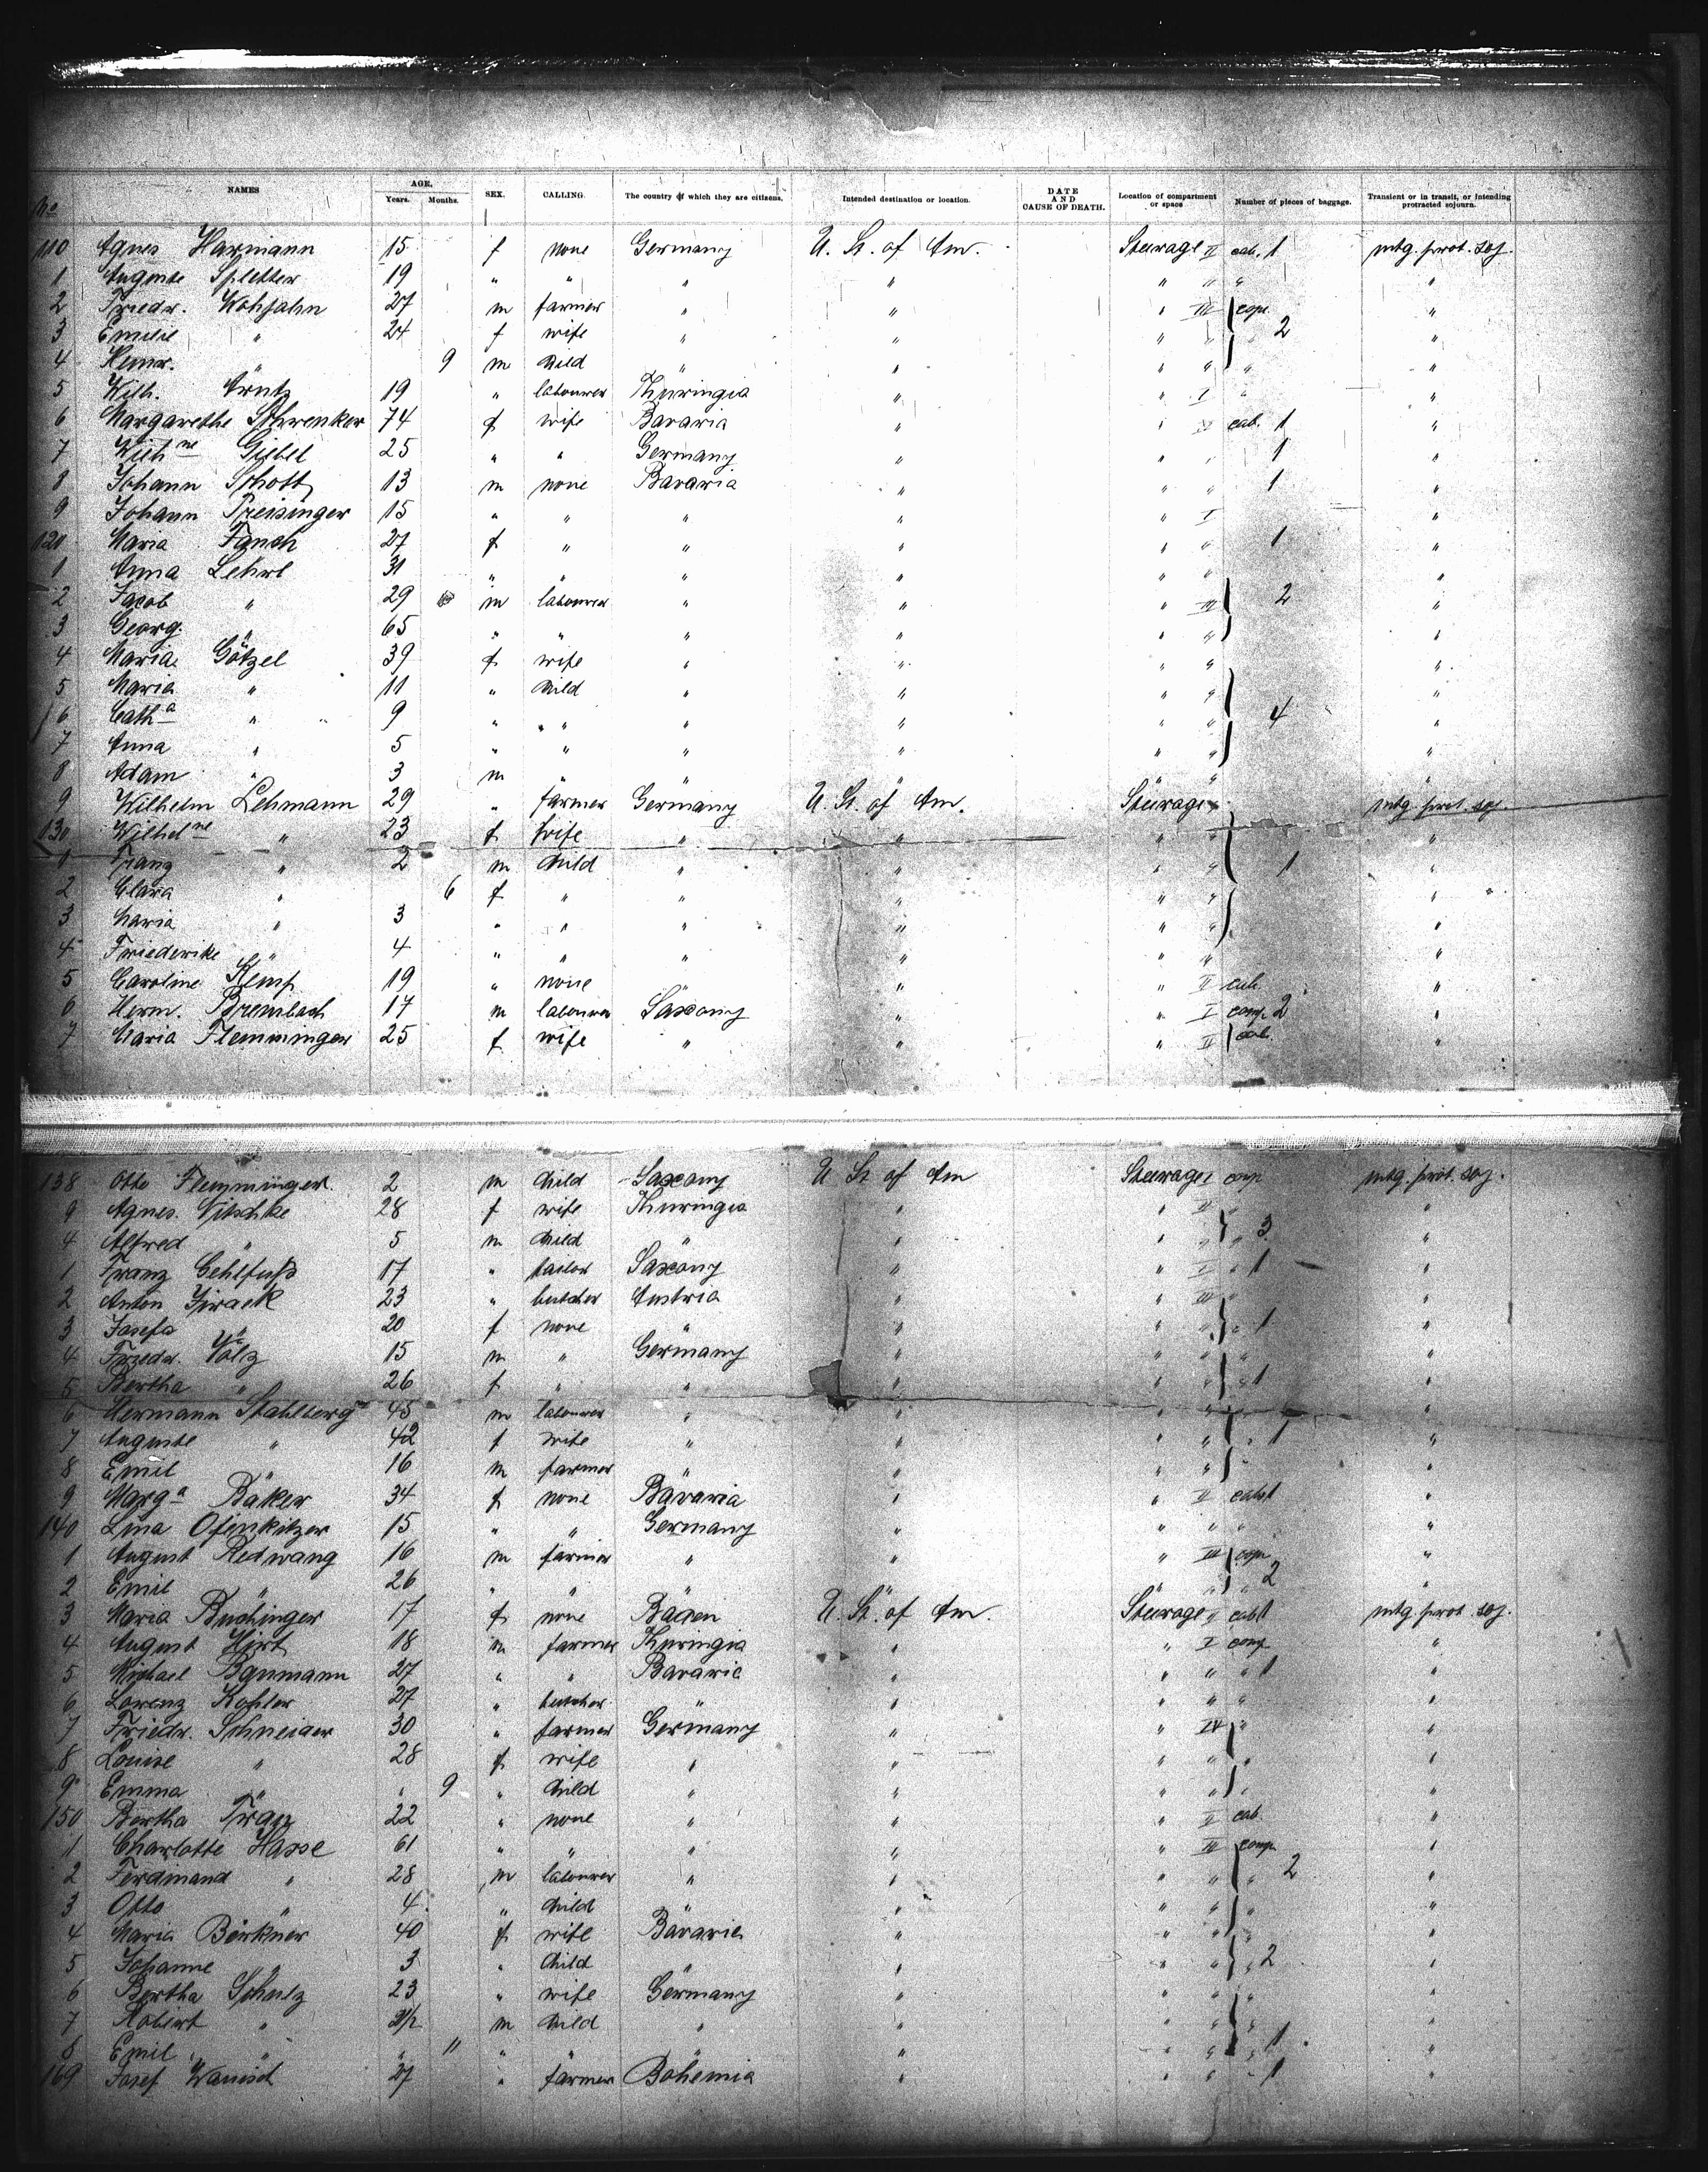 No NAMES AGE. Years. Months. SEX. CALLING. The country of which they are citizens. Intended destination or location. DATE AND CAUSE OF DEATH. Location of compartment or space Number of pieces of baggage. Transient or in transit, or intending protracted sojourn.
110 Agnes Harmann 15 f none Germany U. St. of Am. Steerage II cab. 1 intg. prot. soj.
1 Auguste Spletter 19 " " " " " " " "
2 Friedr. Wohfahn 27 m farmer " " " III comp. "
3 Emilie " 24 f wife " " " " " 2 "
4 Heinr. " 9 m child " " " " " "
5 Wilh. Arntz 19 " labourer Thuringia " " I " "
6 Margarethe Schrenker 74 f wife Bavaria " " II cab. 1 "
7 Wilhne Giebel 25 " " Germany " " " 1 "
8 Johann Schott 13 m none Bavaria " " " 1 "
9 Johann Preisinger 15 " " " " " I "
120 Maria Fanch 27 f " " " " " 1 "
1 Anna Lehrl 31 " " " " " " "
2 Jacob " 29 m labourer " " " III 2 "
3 Georg. " 65 " " " " " " "
4 Maria Götzel 39 f wife " " " " "
5 Maria " 11 " child " " " " "
6 Catha " 9 " " " " " " 4 "
7 Anna " 5 " " " " " " "
8 Adam " 3 m " " " " " "
9 Wilhelm Lehmann 29 " farmer Germany U. St. of Am. Steerage " intg. prot. soj.
130 Wilhelne " 23 f wife " " " " "
1 Franz " 2 m child " " " " 1 "
2 Clara " 6 f " " " " " "
3 Maria " 3 " " " " " " "
4 Friederike " 4 " " " " " " "
5 Caroline Kemp 19 " none " " II cab. "
6 Herm. Brembach 17 m labourer Saxony " " I comp. 2 "
7 Maria Flemminger 25 f wife " " " II cab. "
138 Otto Flemminger 2 m child Saxony U St of Am Steerage I comp intg. prot. soj.
9 Agnes Nitschke 28 f wife Thuringia " " II " "
4 Alfred " 5 m child " " " " " 3 "
1 Franz Gehlfuss 17 " tailor Saxony " " I " 1 "
2 Anton Jirack 23 " butcher Austria " " III " "
3 Josefa " 20 f none " " " " " 1 "
4 Friedr. Völz 15 m " Germany " " " " "
5 Bertha " 26 f " " " " " " 1 "
6 Hermann Stahlberg 45 m labourer " " " " " "
7 Auguste " 42 f wife " " " " " 1 "
8 Emil " 16 m farmer " " " " " "
9 Marga Bäker 34 f none Bavaria " " II cab 1 "
140 Lina Ofinkitzer 15 " " Germany " " " " "
1 August Redwang 16 m farmer " " " III comp "
2 Emil " 26 " " " " " " " 2 "
3 Maria Buchinger 17 f none Baden U. St. of Am. Steerage II cab 1 intg. prot. soj.
4 August Hirt 18 m farmer Thuringia " " I comp "
5 Michael Baumann 27 " " Bavaria " " " " 1 "
6 Lorenz Kohler 27 " butcher " " " " " "
7 Friedr. Schneider 30 " farmer Germany " " IV " "
8 Louise " 28 f wife " " " " " "
9 Emma " " 9 " child " " " " " "
150 Bertha Tran 22 " none " " " II cab. "
1 Charlotte Hasse 61 " " " " " III comp "
2 Ferdinand " 28 m labourer " " " " " 2 "
3 Otto " 4 " child " " " " " "
4 Maria Börkner 40 f wife Bavaria " " " " "
5 Johanne " 3 " child " " " " " 2 "
6 Bertha Schulz 23 " wife Germany " " " " "
7 Robert " 2 1/2 m child " " " " " "
8 Emil " " 11 " " " " " " 1 "
169 Josef Wanisch 27 " farmer Bohemia " " " " 1 "